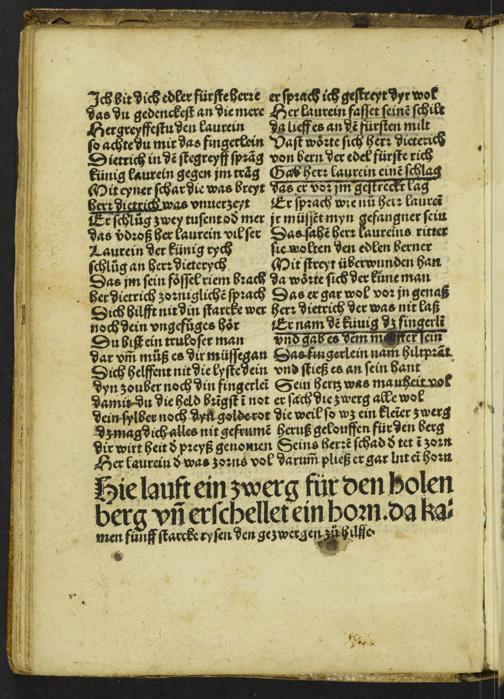 Ich bit dich edler fürste herre
das du gedenckest an die mere
Hergreyffestu den laurein
so achte du mir das fingerlein
Dietrich in dē stegreyff sprāg
künig laurein gegen jm trāg
Mit eyner schar die was breyt
herr dietrich was vnuerzeyt
Er schlüg zwey tusent od mer
das vdroß her laurein vil ser
Laurein der künig rych
schlüg an herr dieterych
Das jm sein fössel riem brach
her dietrich zorniglichē sprach
Dich hilfft nit din starcke wer
noch dein vngefüges hör
Du bist ein truloser man
dar vm̄ müß es dir müssegan
Dich helffent nit die lyste dein
dyn zouber noch din fingerlei
damit du die held brēgst ī not
dein sylber noch dyn golde rot
dz mag dich alles nit gefrumē
dir wirt heit d preyß genomen
Her laurein d was zorns vol
er sprach ich gestreyt dyr wol
Her laurein fasset seinē schilt
da lieff es an dē fürsten milt
Vast wörte sich herr dieterich
von bern der edel fürste rich
Gab herr laurein einē schlag
das er vor jm gestreckt lag
Er sprach wie nū herr laurei
jr müssēt myn gefangner sein
Das sahē herr laureins ritter
sie wolten den edlen berner
Mit streyt überwunden han
da wörte sich der küne man
Das er gar wol vor jn genaß
herz dietrich der was nit laß
Er nam dē künig dz fingerlī
vnd gab es dem meyster sein
Das fingerlein nam hiltprāt
vnd stieß es an sein hant
Sein hertz was manheit vol
er sach die zwerg alle wol
die weil so wz ein kleier zwerg
heruß gelouffen für den berg
Seins herrē schad d tet ī zorn
darum̄ pließ er gar lut eī horn
Hie lauft ein zwerg für den holen
berg vn̄ erschellet ein horn. da ka-
men fünff starcke rysen den gezwergen zü hilffe.